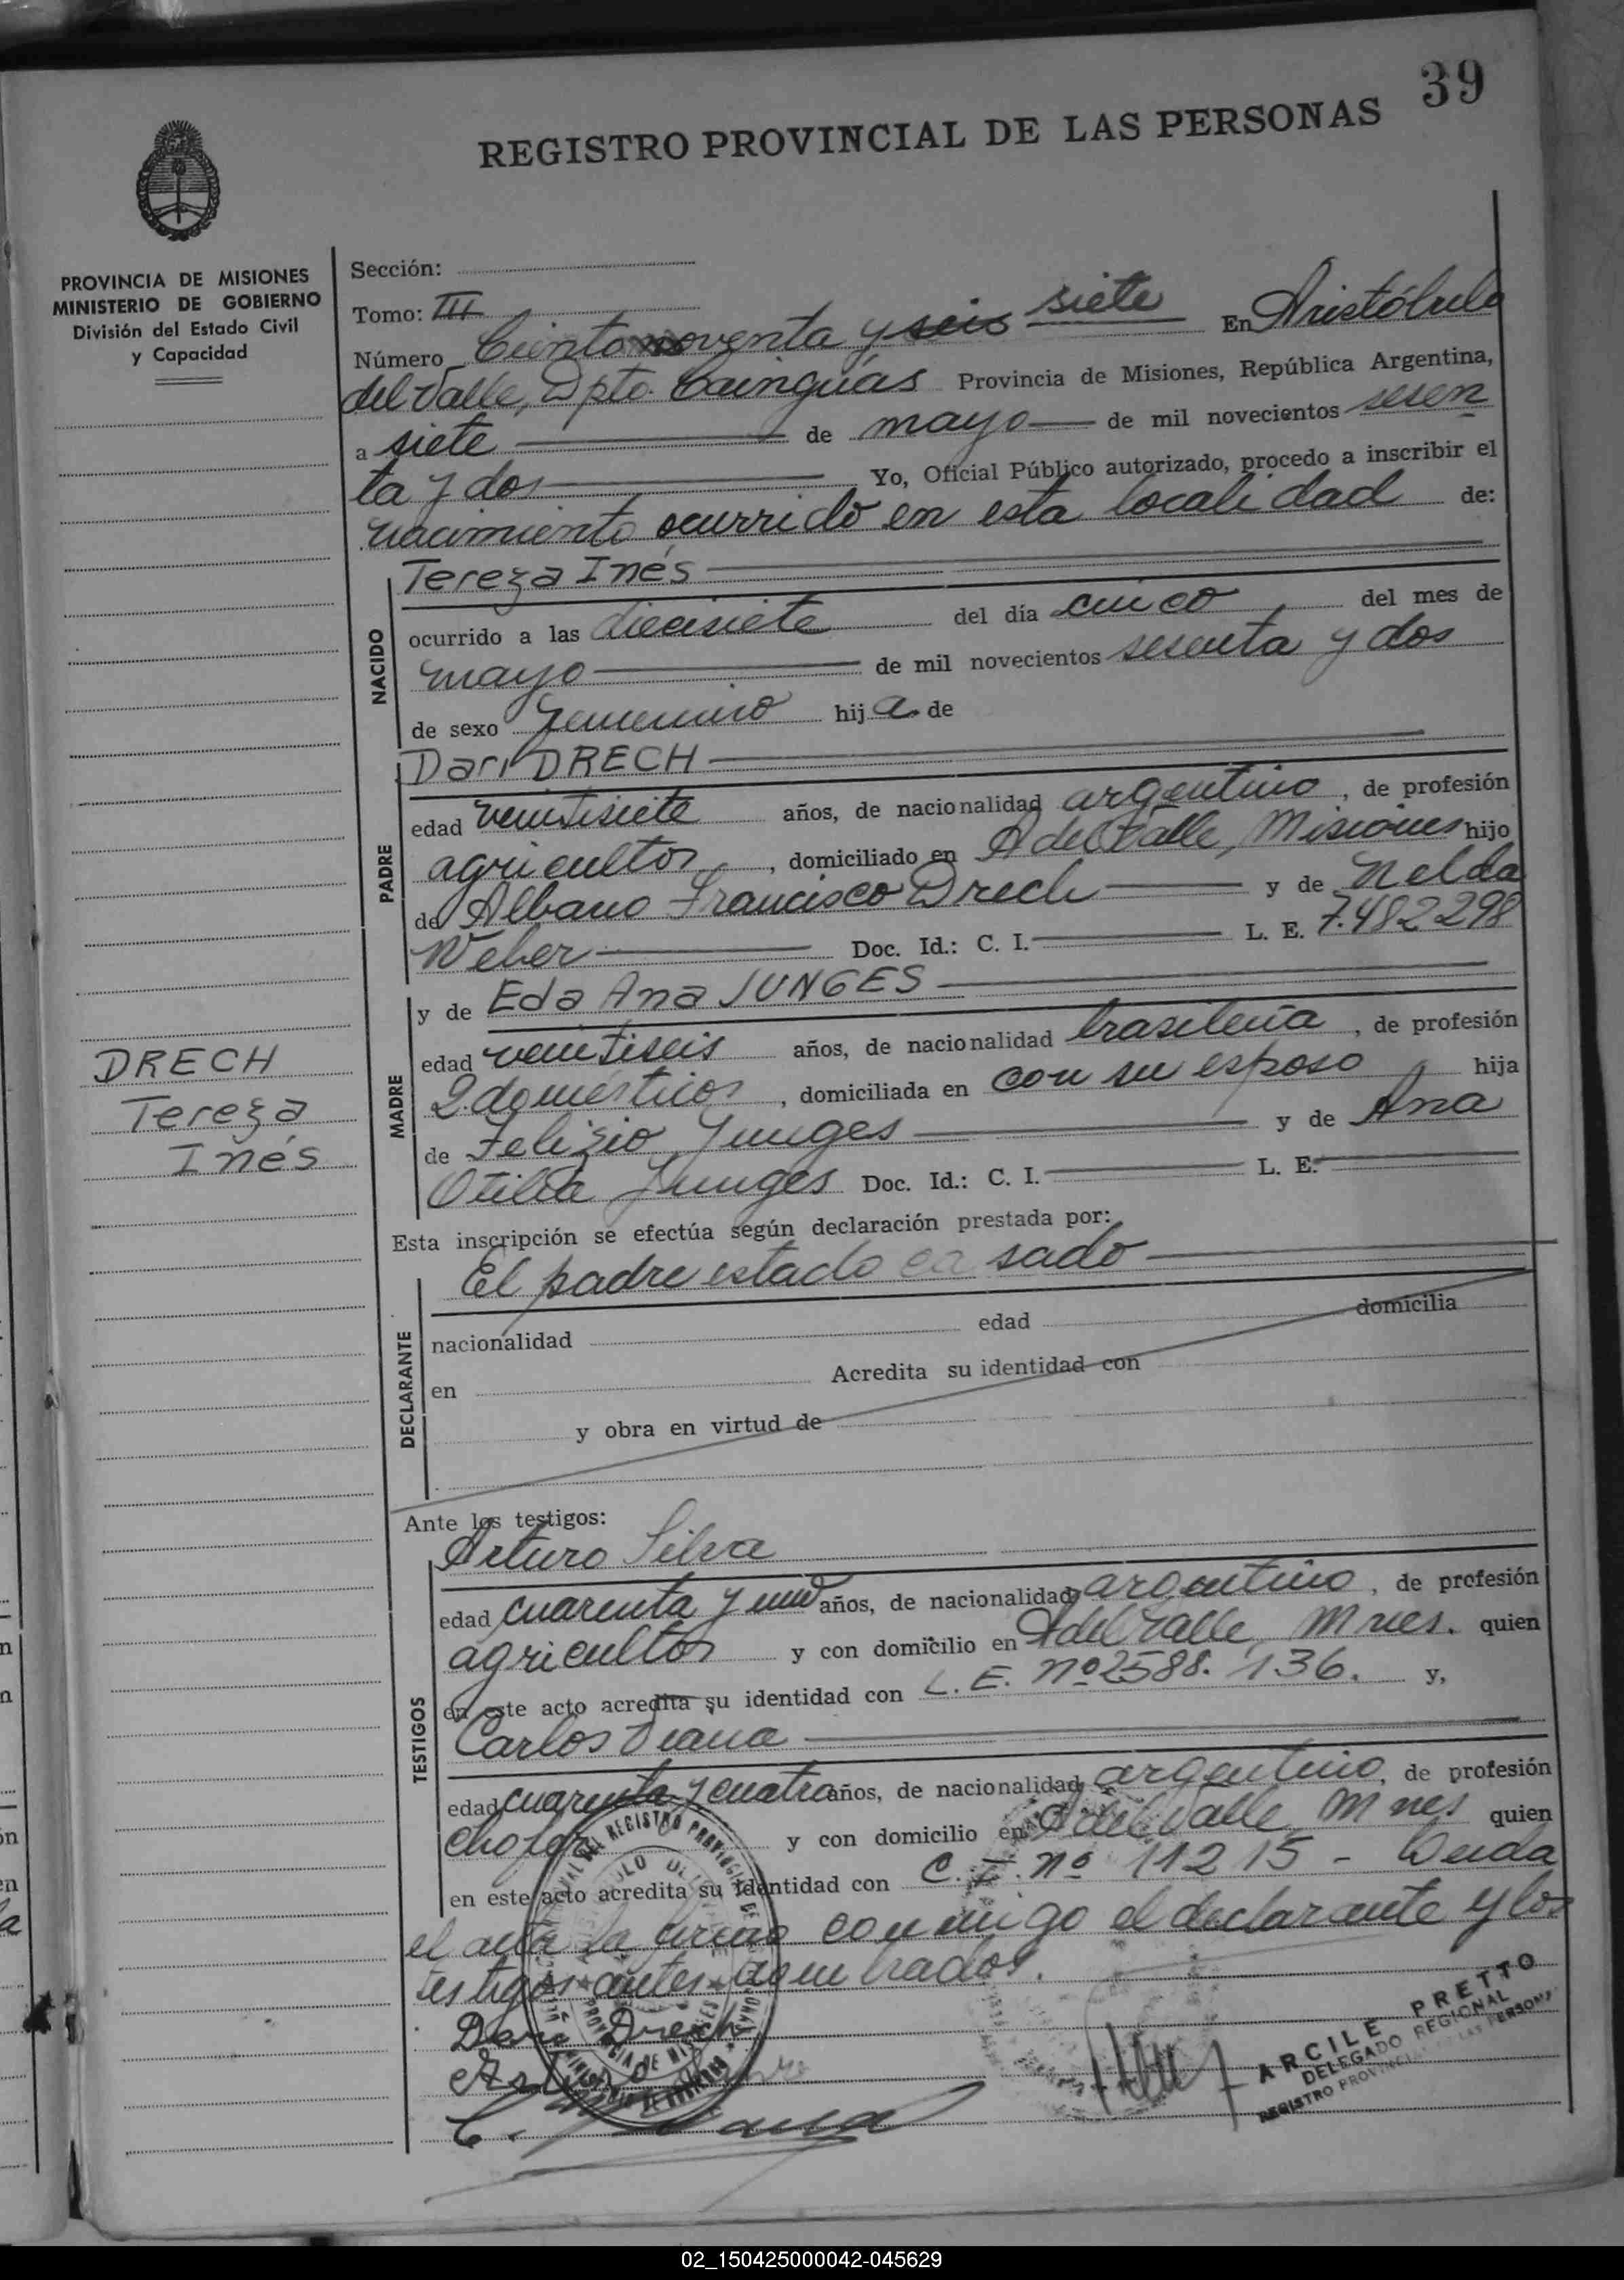 39
REGISTRO PROVINCIAL DE LAS PERSONAS
PROVINCIA DE MISIONES
MINISTERIO DE GOBIERNO
División del Estado Civil
y Capacidad
Sección:
Tomo: III
Número Ciento noventa y seis siete En Aristóbulo
del Valle, Dpto. Cainguas Provincia de Misiones, República Argentina,
a siete de mayo de mil novecientos sesen
ta y dos Yo, Oficial Público autorizado, procedo a inscribir el
nacimiento ocurrido en esta localidad de:
NACIDO
Tereza Inés
ocurrido a las diecisiete del día cinco del mes de
mayo de mil novecientos sesenta y dos
de sexo femenino hija de
PADRE
Dari DRECH
edad veintisiete años, de nacionalidad argentino, de profesión
agricultor, domiciliado en A del Valle, Misiones hijo
de Albano Francisco Drech y de Nelda
Weber Doc. Id.: C. I. L. E. 7.482298
MADRE
y de Eda Ana JUNGES
edad veintiseis años, de nacionalidad brasileña, de profesión
Q domésticos, domiciliada en con su esposo hija
de Felizio Junges y de Ana
Otilia Junges Doc. Id.: C. I. L. E.
DRECH
Tereza
Inés
Esta inscripción se efectúa según declaración prestada por:
DECLARANTE
El padre estado casado
nacionalidad edad domicilia
en Acredita su identidad con
y obra en virtud de
Ante los testigos:
TESTIGOS
Arturo Silva
edad cuarenta y uno años, de nacionalidad argentino, de profesión
agricultor y con domicilio en A del Valle, Mnes. quien
en este acto acredita su identidad con L. E. nº 2588.136. y,
Carlos Viana
edad cuarenta y cuatro años, de nacionalidad argentino, de profesión
chofer y con domicilio en A del Valle, Mnes quien
en este acto acredita su identidad con C. I. nº 11215 - Leída
el acta la firma conmigo el declarante y los
testigos antes nombrados.
Dari Drech
Arturo
C. Viana
ARCILE PRETTO
DELEGADO REGIONAL
REGISTRO PROVINCIAL DE LAS PERSONAS
02_150425000042-045629